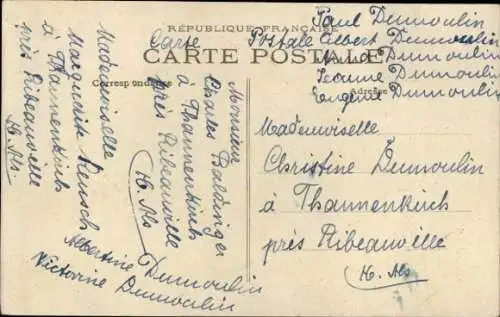 RÉPUBLIQUE FRANÇAISE
Carte Postale
CARTE POSTALE
Correspondance
Adresse
Paul Dumoulin
Albert Dumoulin
Dumoulin
Jeanne Dumoulin
Eugène Dumoulin
Mademoiselle
Christine Dumoulin
à Thannenkirch
près Ribeauville
H. Als
Monsieur
Charles Baldinger
à Thannenkirch
près Ribeauville
H. Als
Mademoiselle
Marguerite Rensch
à Thannenkirch
près Ribeauville
H. Als
Albertine Dumoulin
Victorine Dumoulin